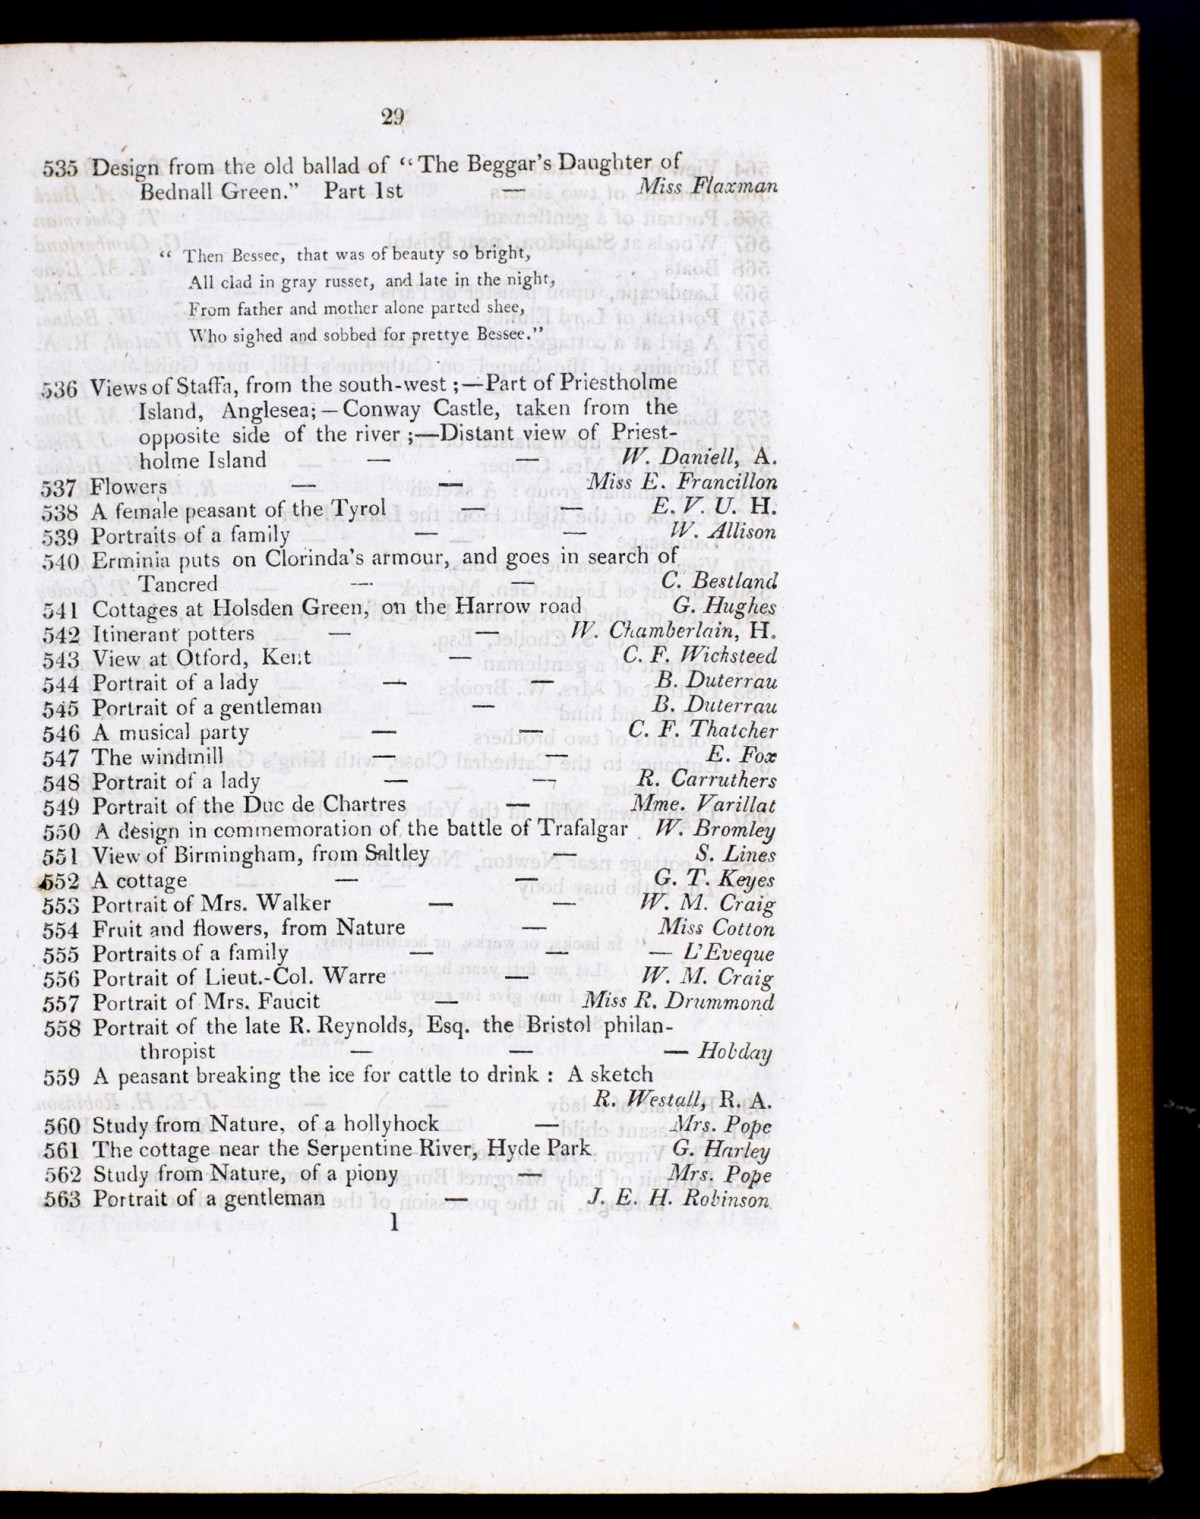 29
535 Design from the old ballad of “The Beggar's Daughter of
Bednall Green.” Part 1st — Miss Flaxman
“ Then Bessee, that was of beauty so bright,
All clad in gray russet, and late in the night,
From father and mother alone parted shee,
Who sighed and sobbed for prettye Bessee.”
536 Views of Staffa, from the south-west ;—Part of Priestholme
Island, Anglesea; — Conway Castle, taken from the
opposite side of the river ;—Distant view of Priest-
holme Island — — W. Daniell, A.
537 Flowers — — Miss E. Francillon
538 A female peasant of the Tyrol — — E. V. U. H.
539 Portraits of a family — — W. Allison
540 Erminia puts on Clorinda's armour, and goes in search of
Tancred — — C. Bestland
541 Cottages at Holsden Green, on the Harrow road G. Hughes
542 Itinerant potters — — W. Chamberlain, H.
543 View at Otford, Kent — C. F. Wicksteed
544 Portrait of a lady — — B. Duterrau
545 Portrait of a gentleman — B. Duterrau
546 A musical party — — C. F. Thatcher
547 The windmill — — E. Fox
548 Portrait of a lady — — R. Carruthers
549 Portrait of the Duc de Chartres — Mme. Varillat
550 A design in commemoration of the battle of Trafalgar W. Bromley
551 View of Birmingham, from Saltley — S. Lines
552 A cottage — — G. T. Keyes
553 Portrait of Mrs. Walker — — W. M. Craig
554 Fruit and flowers, from Nature — Miss Cotton
555 Portraits of a family — — — L'Eveque
556 Portrait of Lieut.-Col. Warre — W. M. Craig
557 Portrait of Mrs. Faucit — Miss R. Drummond
558 Portrait of the late R. Reynolds, Esq. the Bristol philan-
thropist — — — Hobday
559 A peasant breaking the ice for cattle to drink : A sketch
R. Westall, R. A.
560 Study from Nature, of a hollyhock — Mrs. Pope
561 The cottage near the Serpentine River, Hyde Park G. Harley
562 Study from Nature, of a piony — Mrs. Pope
563 Portrait of a gentleman — J. E. H. Robinson
1